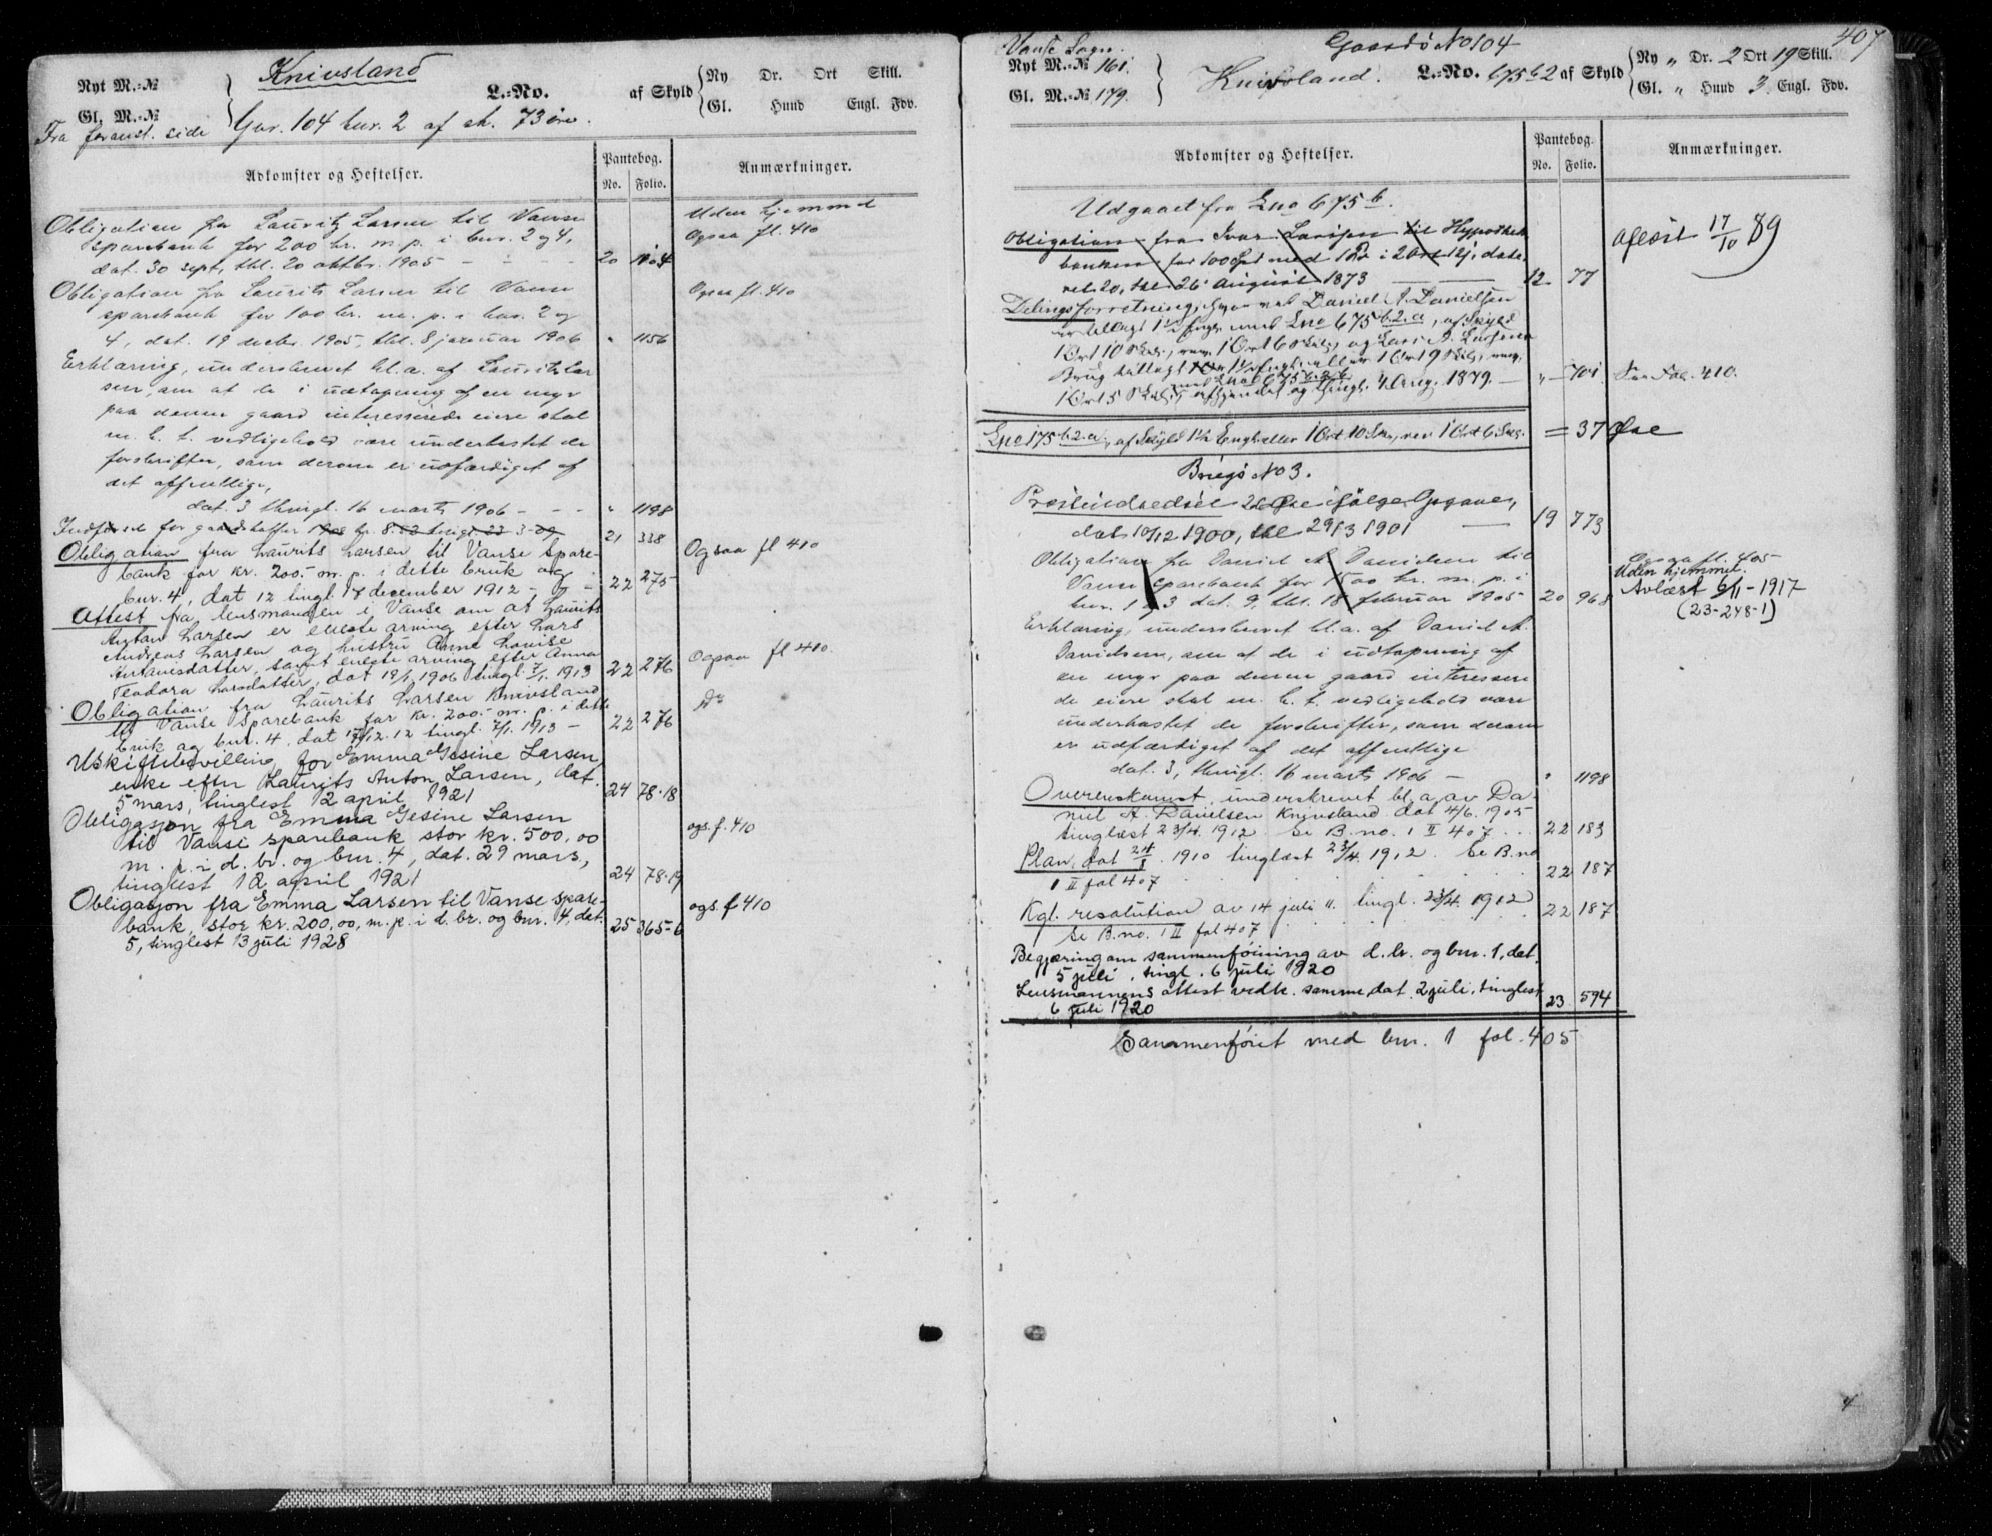 Knivsland
Nyt M.-No L.-No. af Skyld Ny Dr. Ort Skill.
Gl. M.-No Gl. Hund Engl. Fdv.
Fra foranst. side Gnr. 104 bnr. 2 af sk. 73 øre.
Adkomster og Heftelser. Pantebog. No. Folio. Anmærkninger.
Obligation fra Lauritz Larsen til Vanse Uden hjemmel
sparebank for 200 kr. m. p. i bnr. 2 og 4, Ogsaa fl. 410
dat. 30 sept, thl. 20 oktbr. 1905 - - - 20 1104
Obligation fra Laurits Larsen til Vanse Ogsaa fl. 410
sparebank for 100 kr. m. p. i bnr. 2 og
4, dat. 19 decbr. 1905, thl. 8 januar 1906 " 1156
Erklæring, underskrevet bl. a. af Laurits Lar
sen, om at de i udtapning af en myr
paa denne gaard interesserede eiere skal
m. h. t. vedligehold være underkastet de
forskrifter, som derom er udfærdiget af
det offentlige,
dat. 3 thingl. 16 marts 1906 - - - " 1198
for gaardskatter kr. 8.52 tingl. 3-09 21 338
Obligation fra Laurits Larsen til Vanse Spare- Ogsaa fl 410
bank for kr. 200.- m. p. i dette bruk og
bnr. 4, dat 12 tingl. 17 december 1912 - 22 275
Attest fra lensmanden i Vanse om at Laurits
Anton Larsen er eneste arving efter Lars
Andreas Larsen og hustru Anne Lovise
Antonisdatter, samt eneste arving efter Anna
Teodora Larsdatter, dat 19/1 1906 tingl. 7/1. 1913 22 276 Ogsaa fl 410.
Obligation fra Laurits Larsen Knivsland Do
til Vanse Sparebank for kr. 200.- m. p. i dette
bruk og bnr. 4, dat 17/12. 12 tingl. 7/1. 1913 - 22 276
Uskiftebevilling for Emma Gesine Larsen,
enke efter Laurits Anton Larsen, dat.
5 mars, tinglest 12 april 1921 24 78-18
Obligasjon fra Emma Gesine Larsen ogs. f. 410
til Vanse sparebank stor kr. 500,00
m. p. i d. br. og bnr. 4, dat. 29 mars,
tinglest 12 april 1921 24 78-19
Obligasjon fra Emma Larsen til Vanse spare- ogs. f 410
bank, stor kr. 200,00, m. p. i d. br. og bnr. 4, dat.
5, tinglest 13 juli 1928 25 365-6
407
Vanse Sogn. Gaards No 104
Nyt M.-No 161. Knivsland. L.-No. 675 b 2 af Skyld Ny " Dr. 2 Ort 19 Skill.
Gl. M.-No 179. Gl. " Hund 3. Engl. Fdv.
Adkomster og Heftelser. Pantebog. No. Folio. Anmærkninger.
Udgaaet fra Lno 675 b.
Obligation fra Ivar Larsen til Hypothek
banken for 100 Spd med 1 Pr. i 2 Ort 19 ß, date
ret 20, thl. 26 August 1873 12 77 aflæst 17/10 89
Delingsforretning, hvorved Daniel A. Danielsen
er tillagt 1 1/2 Engl. med Lno 675 b.2.a, af Skyld
1 Ort 10 Skil., rev. 1 Ort 6 Skil., og Lars A. Larsens
Brug tillagt 1 1/2 Engl. eller 1 Ort 9 Skil., rev.
1 Ort 5 Skil., med Lno 675 b.2.b, afhjemlet og thingl. 4 Aug. 1879. " 701. Se Fol. 410.
Lno 175 b.2.a, af Skyld 1 1/2 Engl. eller 1 Ort 10 Skil., rev. 1 Ort 6 Skil. = 37 Øre
Brugs No 3.
dat 10/12 1900, thl 29/3 1901 19 773
Obligation fra Daniel A Danielsen til Ogsaa fl. 405
Vanse sparebank for 1500 kr. m. p. i Uden hjemmel.
bnr. 1 og 3 dat. 9. thl. 18 februar 1905 20 968 Avlæst 6/11 - 1917
(23-248-1)
Erklæring, underskrevet bl. a. af Daniel A.
Danielsen, om at de i udtapning af
en myr paa denne gaard interesse
de eiere skal m. h. t. vedligehold være
underkastet de forskrifter, som derom
er udfærdiget af det offentlige
dat. 3, thingl. 16 marts 1906 - " 1198
Overenskomst underskrevet bl. a. av Da-
niel A. Danielsen Knivsland. dat 4/6. 1905
tinglæst 23/4. 1912. Se B. no. 1 II 407 22 183
Plan, dat 24/8 1910 tinglæst 23/4. 1912. Se B. no
1 II fol 407 22 187
Kgl. resolution av 14 juli 11. tingl. 23/4. 1912
Se B. no. 1 II fol 407 22 187
Begjæring om sammenføining av d. br. og bnr. 1, dat.
5 juli, tingl. 6 juli 1920
Lensmannens attest vedk. samme, dat. 2 juli, tinglest
6 juli 1920 23 594
Sammenføiet med bnr. 1 fol. 405